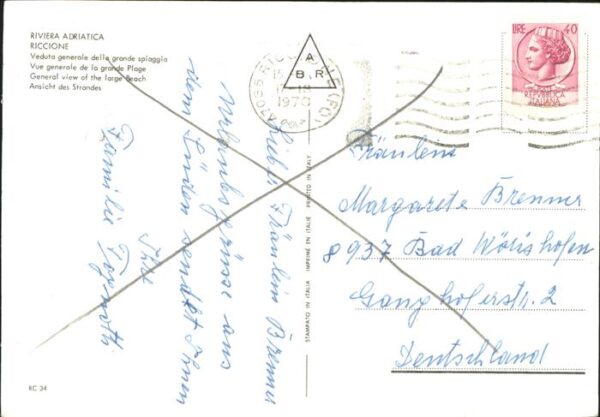 RIVIERA ADRIATICA
RICCIONE
Veduta generale della grande spiaggia
Vue generale de la grande Plage
General view of the large Beach
Ansicht des Strandes
LIRE 40
REPUBBLICA
ITALIANA
A
B R
1970
Liebes Fräulein Brenner
Urlaubsgrüsse aus
dem Süden sendet Ihnen
Familie
STAMPATO IN ITALIA IMPRIMÉ EN ITALIE PRINTED IN ITALY
Fräulein
Margarete Brenner
8937 Bad Wörishofen
Ganghoferstr. 2
Deutschland
RC 34